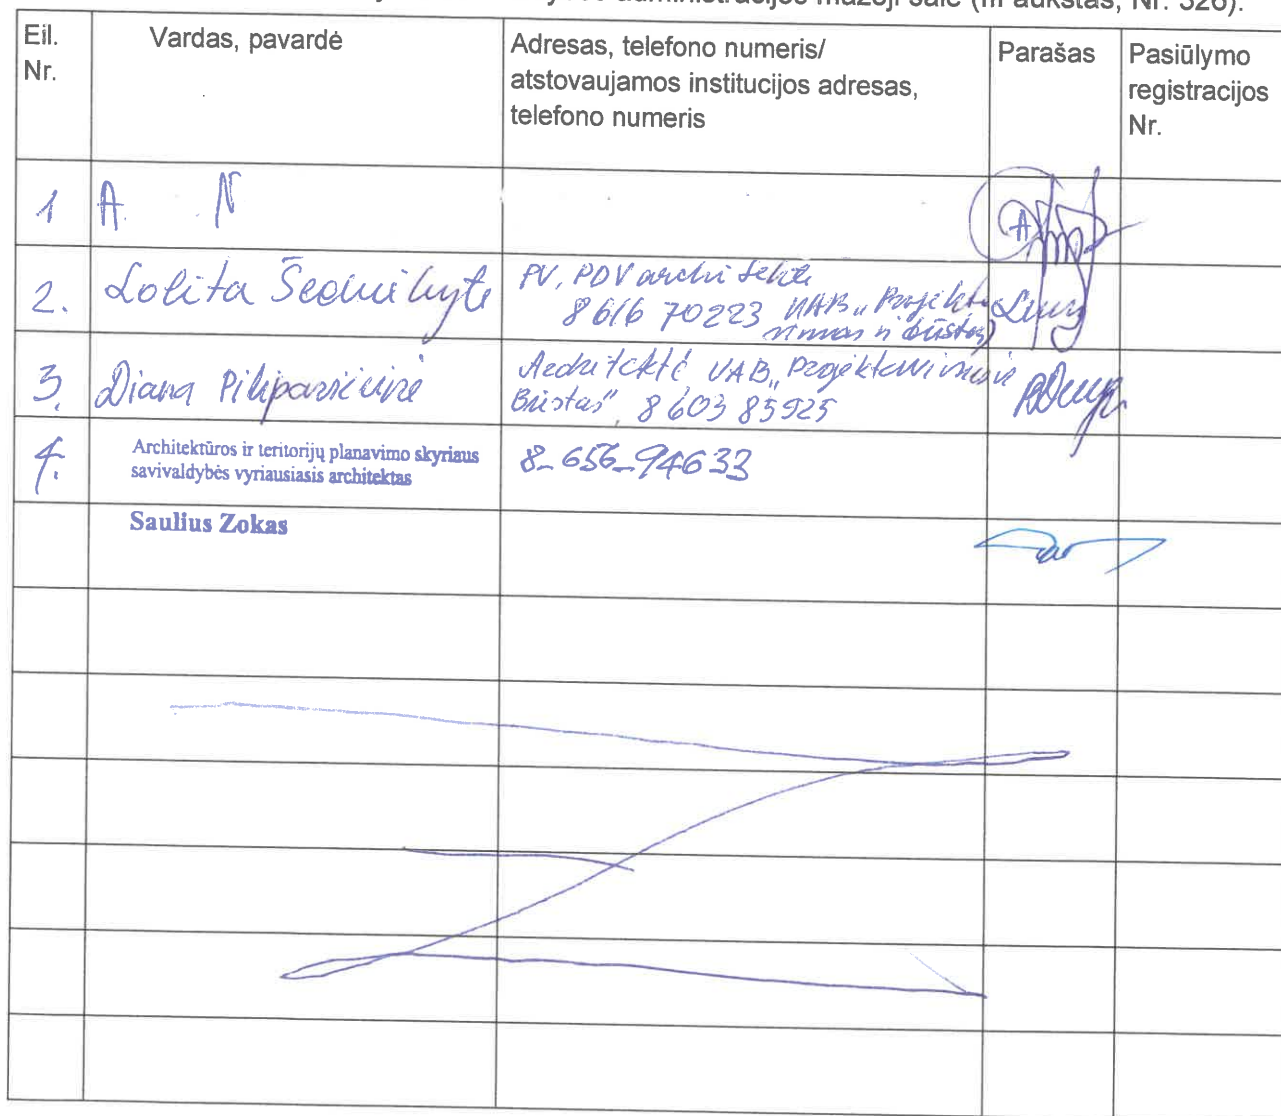 administracijos mažoji salė (III aukštas, Nr. 326).
Eil.
Nr.
Vardas, pavardė
Adresas, telefono numeris/
atstovaujamos institucijos adresas,
telefono numeris
Parašas
Pasiūlymo
registracijos
Nr.
1 A. N
2. Lolita
PV, PDV
8 616 70223 UAB
būstas"
3. Diana
UAB „Projektavimas ir
Būstas", 8 603 85925
4. Architektūros ir teritorijų planavimo skyriaus
savivaldybės vyriausiasis architektas
Saulius Zokas
8-656-94633